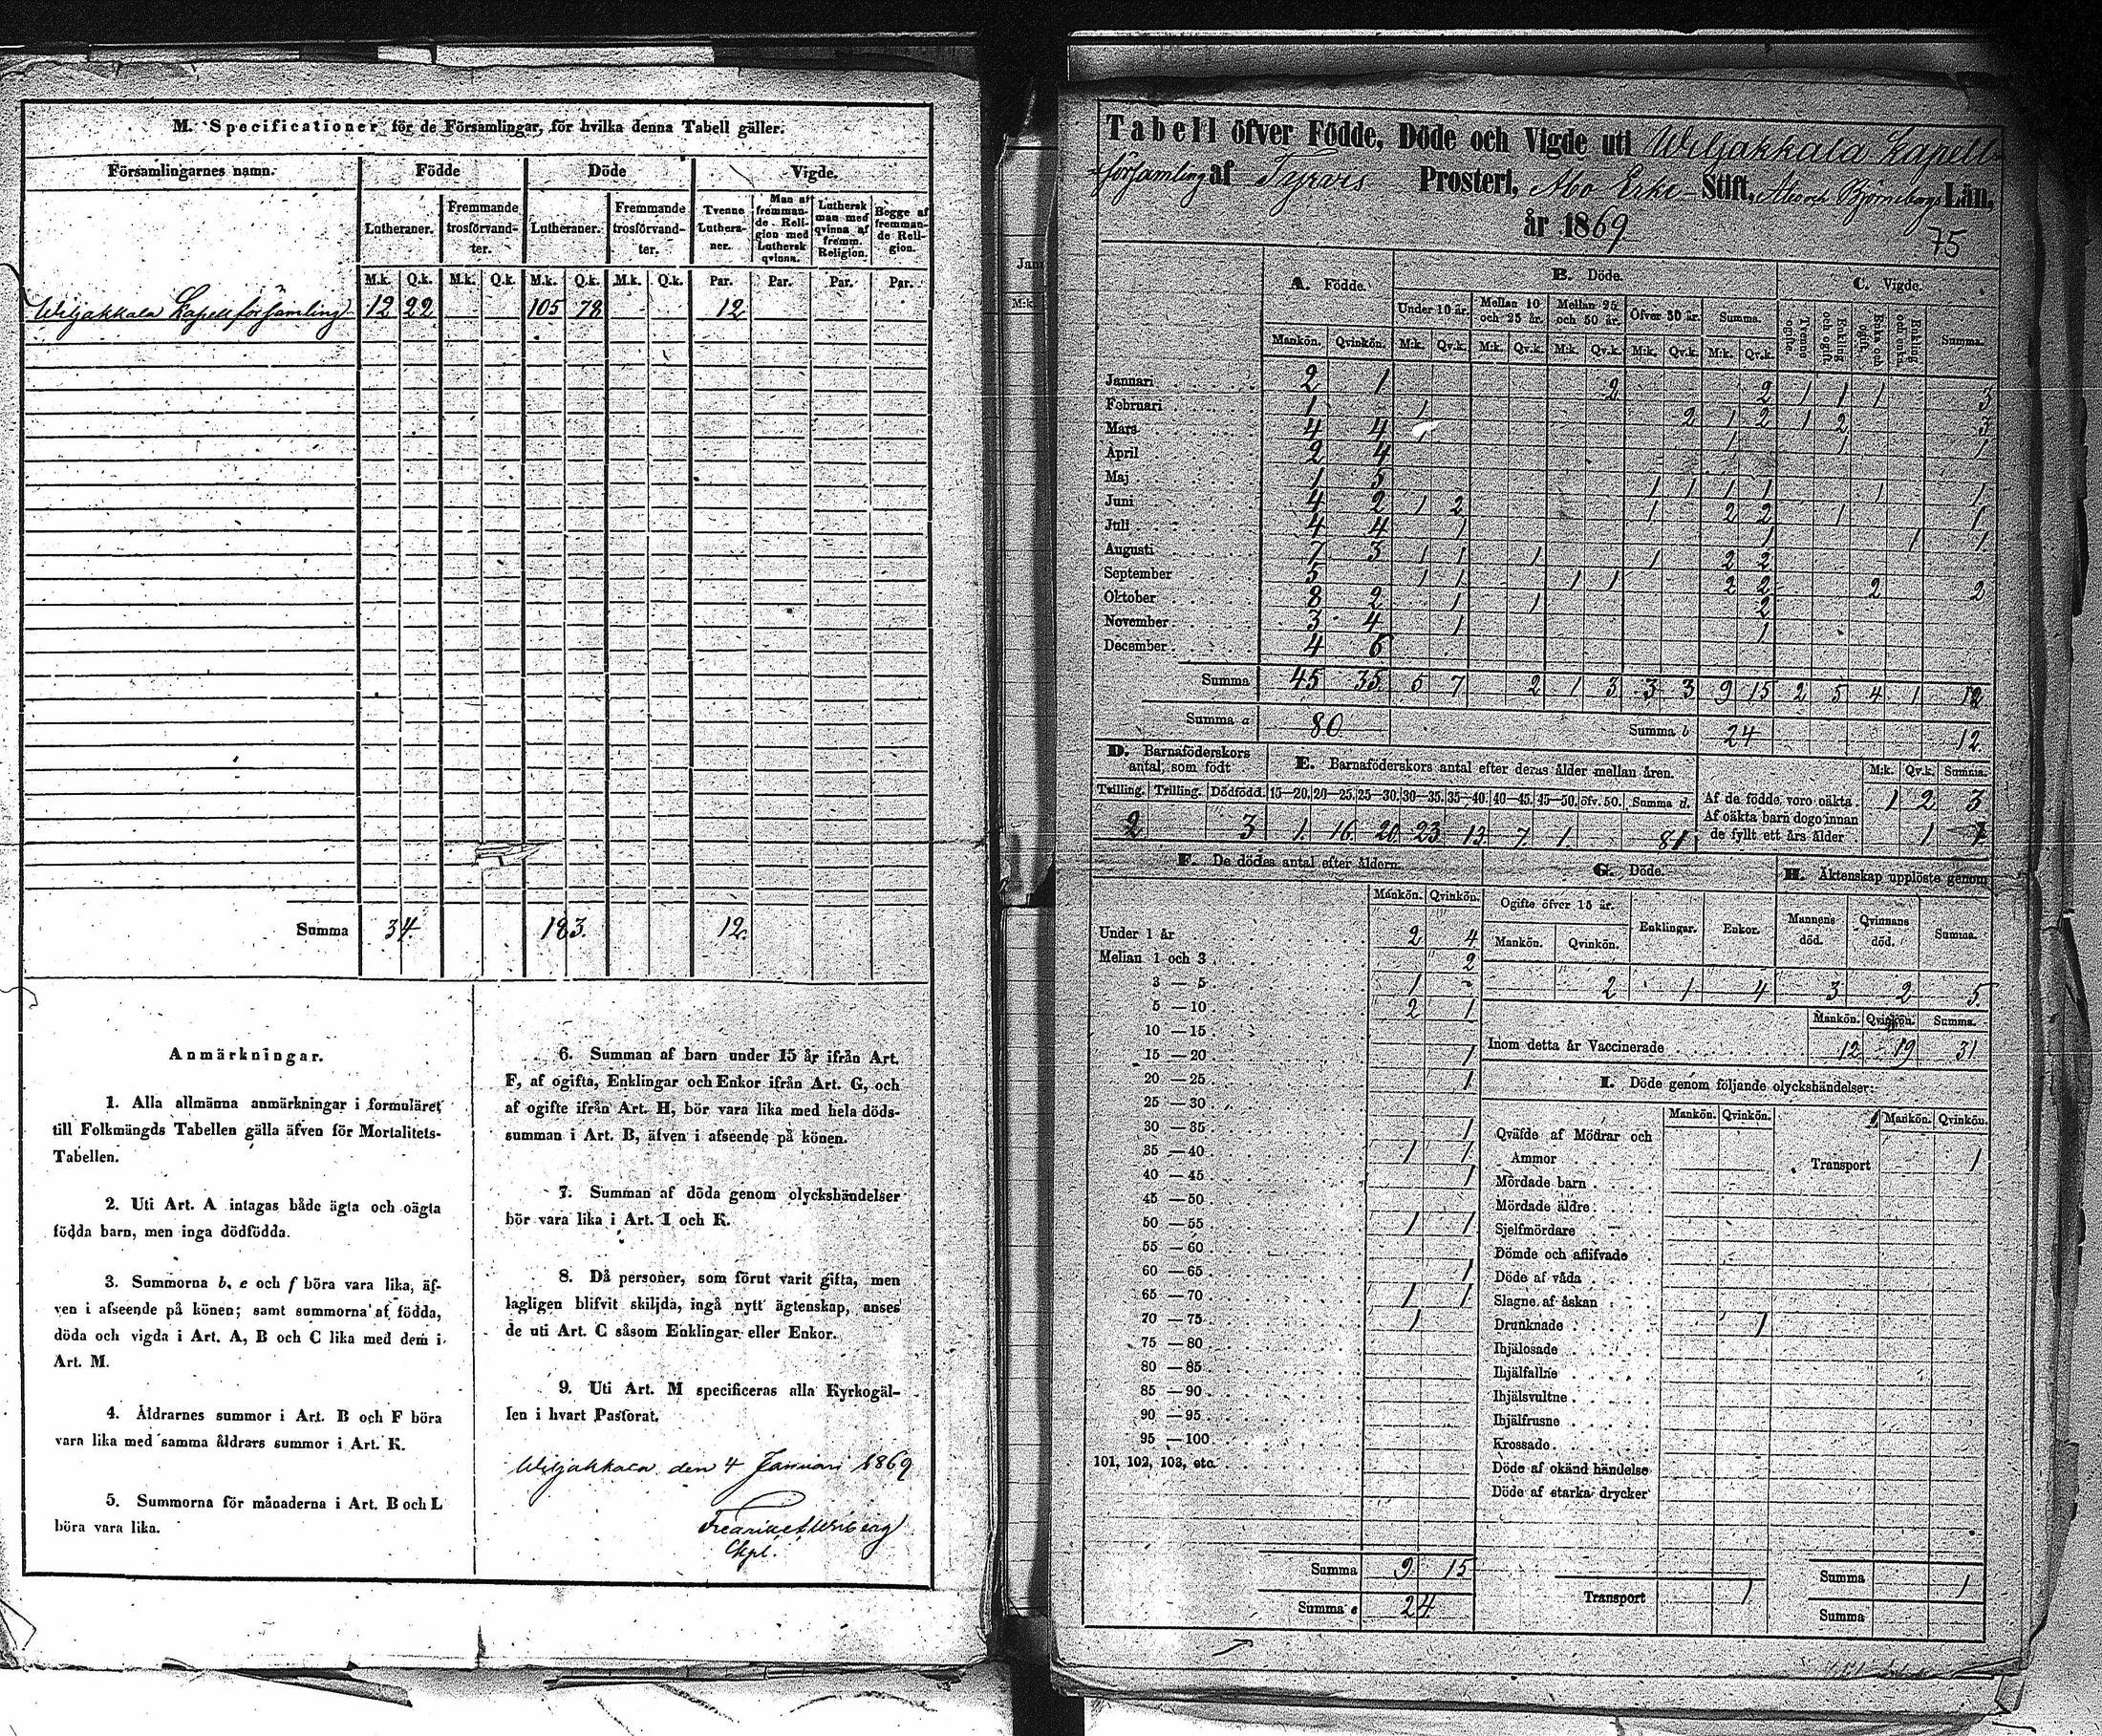 M. Specificationer för de Församlingar, för hvilka denna Tabell gäller.
Församlingarnes namn. Födde Döde Vigde.
Lutheraner. Fremmande trosförvandter. Lutheraner. Fremmande trosförvandter. Tvenne Lutheraner. Man af fremmande Religion med Luthersk qvinna. Luthersk man med qvinna af fremm. Religion. Begge af fremmande Religion.
M.k. Q.k. M.k. Q.k. M.k. Q.k. M.k. Q.k. Par. Par. Par. Par.
Wiljakkala Kapellförsamling 12 22 105 78 12
Summa 34. 183. 12.
Anmärkningar.
1. Alla allmänna anmärkningar i formuläret
till Folkmängds Tabellen gälla äfven för Mortalitets-
Tabellen.
2. Uti Art. A intagas både ägta och oägta
födda barn, men inga dödfödda.
3. Summorna b, e och f böra vara lika, äf-
ven i afseende på könen; samt summorna af födda,
döda och vigda i Art. A, B och C lika med dem i
Art. M.
4. Åldrarnes summor i Art. B och F böra
vara lika med samma åldrars summor i Art. K.
5. Summorna för månaderna i Art. B och L
böra vara lika.
6. Summan af barn under 15 år ifrån Art.
F, af ogifta, Enklingar och Enkor ifrån Art. G, och
af ogifte ifrån Art. H, bör vara lika med hela döds-
summan i Art. B, äfven i afseende på könen.
7. Summan af döda genom olyckshändelser
bör vara lika i Art. I och K.
8. Då personer, som förut varit gifta, men
lagligen blifvit skiljda, ingå nytt ägtenskap, anses
de uti Art. C såsom Enklingar eller Enkor.
9. Uti Art. M specificeras alla Kyrkogäl-
len i hvart Pastorat.
Wiljakkala den 4 Januari 1869
Kpl.
Tabell öfver Födde, Döde och Vigde uti Wiljakkala Kapell-
församling af Tyrvis Prosteri, Åbo Erke- Stift, Åbo och Björneborgs Län,
år 1869
75
A. Födde. B. Döde. C. Vigde.
Under 10 år. Mellan 10 och 25 år. Mellan 25 och 50 år. Öfver 50 år. Summa. Tvenne ogifte. Enkling och ogift. Enka och ogift. Enkling och enka. Summa.
Mankön. Qvinkön. M:k. Qv.k. M:k. Qv.k. M:k. Qv.k. M:k. Qv.k. M:k. Qv.k.
Januari 2 1 2 2 1 1 1 3
Februari 1 1 2 1 2 1 2 3
Mars 4 4 1 1 1 1
April 2 4
Maj 1 5 1 1 1 1 1 1
Juni 4 2 1 2 1 2 2 1 1
Juli 4 4 1 1 1 1
Augusti 7 3 1 1 1 1 2 2
September 5 1 1 1 1 2 2 2 2
Oktober 8 2 1 1 2
November 3 4 1 1
December 4 6
Summa 45 35 5 7 2 1 3 3 3 9 15 2 5 4 1 12
Summa a 80 Summa b 24 12
D. Barnaföderskors antal, som födt
E. Barnaföderskors antal efter deras ålder mellan åren.
M:k. Qv.k. Summa.
Tvilling. Trilling. Dödfödd. 15—20. 20—25. 25—30. 30—35. 35—40. 40—45. 45—50. öfv. 50. Summa d.
2 3 1. 16 20 23 13 7 1. 81
Af de födde voro oäkta 1 2 3
Af oäkta barn dogo innan
de fyllt ett års ålder 1 1
F. De dödes antal efter åldern.
Mankön. Qvinkön.
Under 1 år 2 4
Mellan 1 och 3 2
3 — 5 1
5 — 10 2 1
10 — 15
15 — 20 1
20 — 25 1
25 — 30
30 — 35 1
35 — 40 1 1
40 — 45 1
45 — 50
50 — 55 1 1
55 — 60
60 — 65 1
65 — 70 1 1
70 — 75 1
75 — 80
80 — 85
85 — 90
90 — 95
95 — 100
101, 102, 103, etc.
Summa 9 15
Summa e 24
G. Döde.
Ogifte öfver 15 år. Enklingar. Enkor.
Mankön. Qvinkön.
2 1 4
H. Äktenskap upplöste genom
Mannens död. Qvinnans död. Summa.
3 2 5.
Mankön. Qvinkön. Summa.
Inom detta år Vaccinerade 12 19 31
I. Döde genom följande olyckshändelser:
Mankön. Qvinkön. Mankön. Qvinkön.
Qväfde af Mödrar och
Ammor
Transport 1
Mördade barn
Mördade äldre
Sjelfmördare
Dömde och aflifvade
Döde af våda
Slagne af åskan
Drunknade 1
Ihjälosade
Ihjälfallne
Ihjälsvultne
Ihjälfrusne
Krossade
Döde af okänd händelse
Döde af starka drycker
Transport 1
Summa 1
Summa